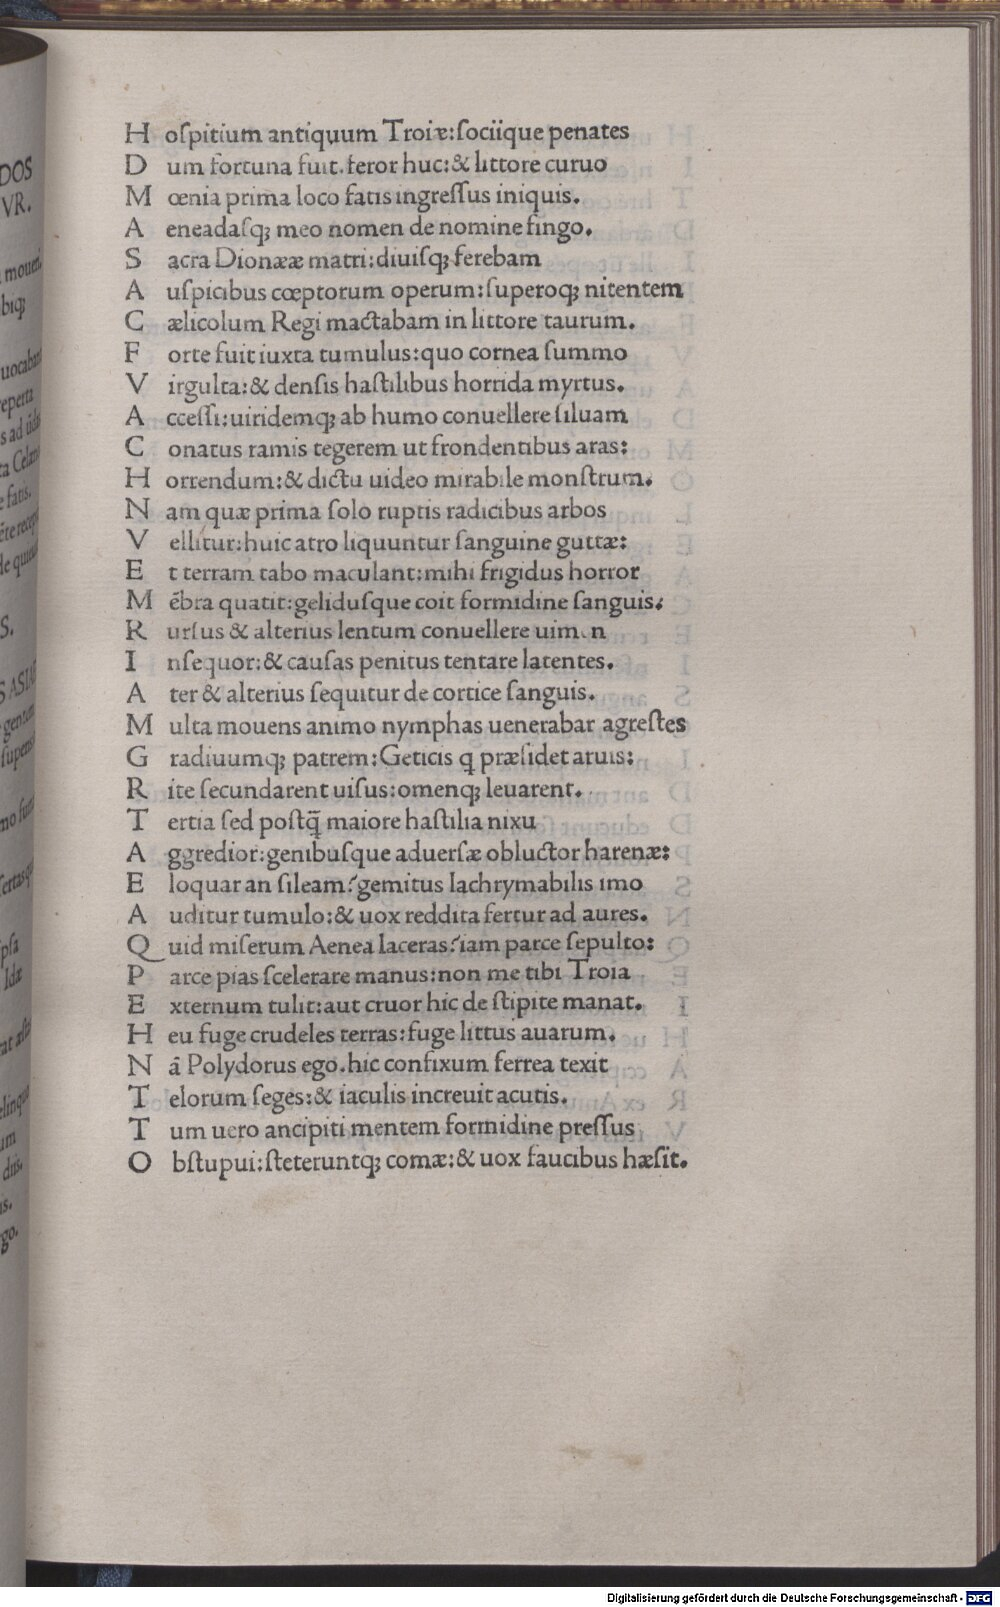 Hoſpitium antiquum Troiæ:ſociique penates
Dum fortuna fuit.feror huc:& littore curuo
Mœnia prima loco fatis ingreſſus iniquis.
Aeneadaſqꝫ meo nomen de nomine fingo.
Sacra Dionææ matri:diuiſqꝫ ferebam
Auſpicibus cœptorum operum:ſuperoqꝫ nitentem
Cælicolum Regi mactabam in littore taurum.
Forte fuit iuxta tumulus:quo cornea ſummo
Virgulta:& denſis haſtilibus horrida myrtus.
Acceſſi:uiridemqꝫ ab humo conuellere ſiluam
Conatus ramis tegerem ut frondentibus aras:
Horrendum:& dictu uideo mirabile monſtrum.
Nam quæ prima ſolo ruptis radicibus arbos
Vellitur:huic atro liquuntur ſanguine guttæ:
Et terram tabo maculant:mihi frigidus horror
Mēbra quatit:geliduſque coit formidine ſanguis:
Rurſus & alterius lentum conuellere uimen
Inſequor:& cauſas penitus tentare latentes.
Ater & alterius ſequitur de cortice ſanguis.
Multa mouens animo nymphas uenerabar agreſtes
Gradiuumqꝫ patrem:Geticis q præſidet aruis:
Rite ſecundarent uiſus:omenqꝫ leuarent.
Tertia ſed poſtq̄ maiore haſtilia nixu
Aggredior:genibuſque aduerſæ obluctor harenæ:
Eloquar an ſileam?gemitus lachrymabilis imo
Auditur tumulo:& uox reddita fertur ad aures.
Quid miſerum Aenea laceras?iam parce ſepulto:
Parce pias ſcelerare manus:non me tibi Troia
Externum tulit:aut cruor hic de ſtipite manat.
Heu fuge crudeles terras:fuge littus auarum.
Nā Polydorus ego.hic confixum ferrea texit
Telorum ſeges:& iaculis increuit acutis.
Tum uero ancipiti mentem formidine preſſus
Obſtupui:ſteteruntqꝫ comæ:& uox faucibus hæſit.
Digitalisierung gefördert durch die Deutsche Forschungsgemeinschaft - DFG